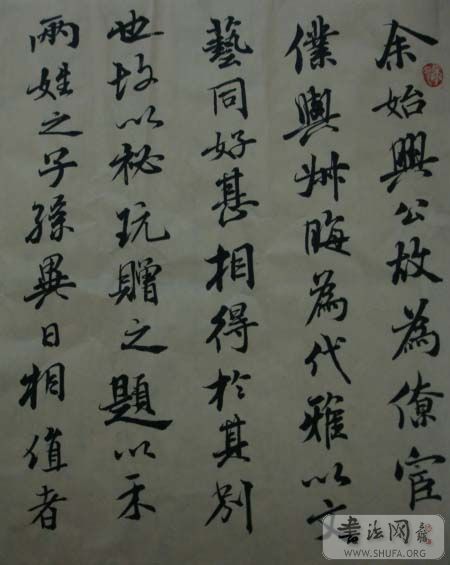 余始興公故為僚宦
僕與叔晦為代雅以文
藝同好甚相得於其別
也故以祕玩贈之題以示
兩姓之子孫異日相值者
书法网
WWW.SHUFA.ORG